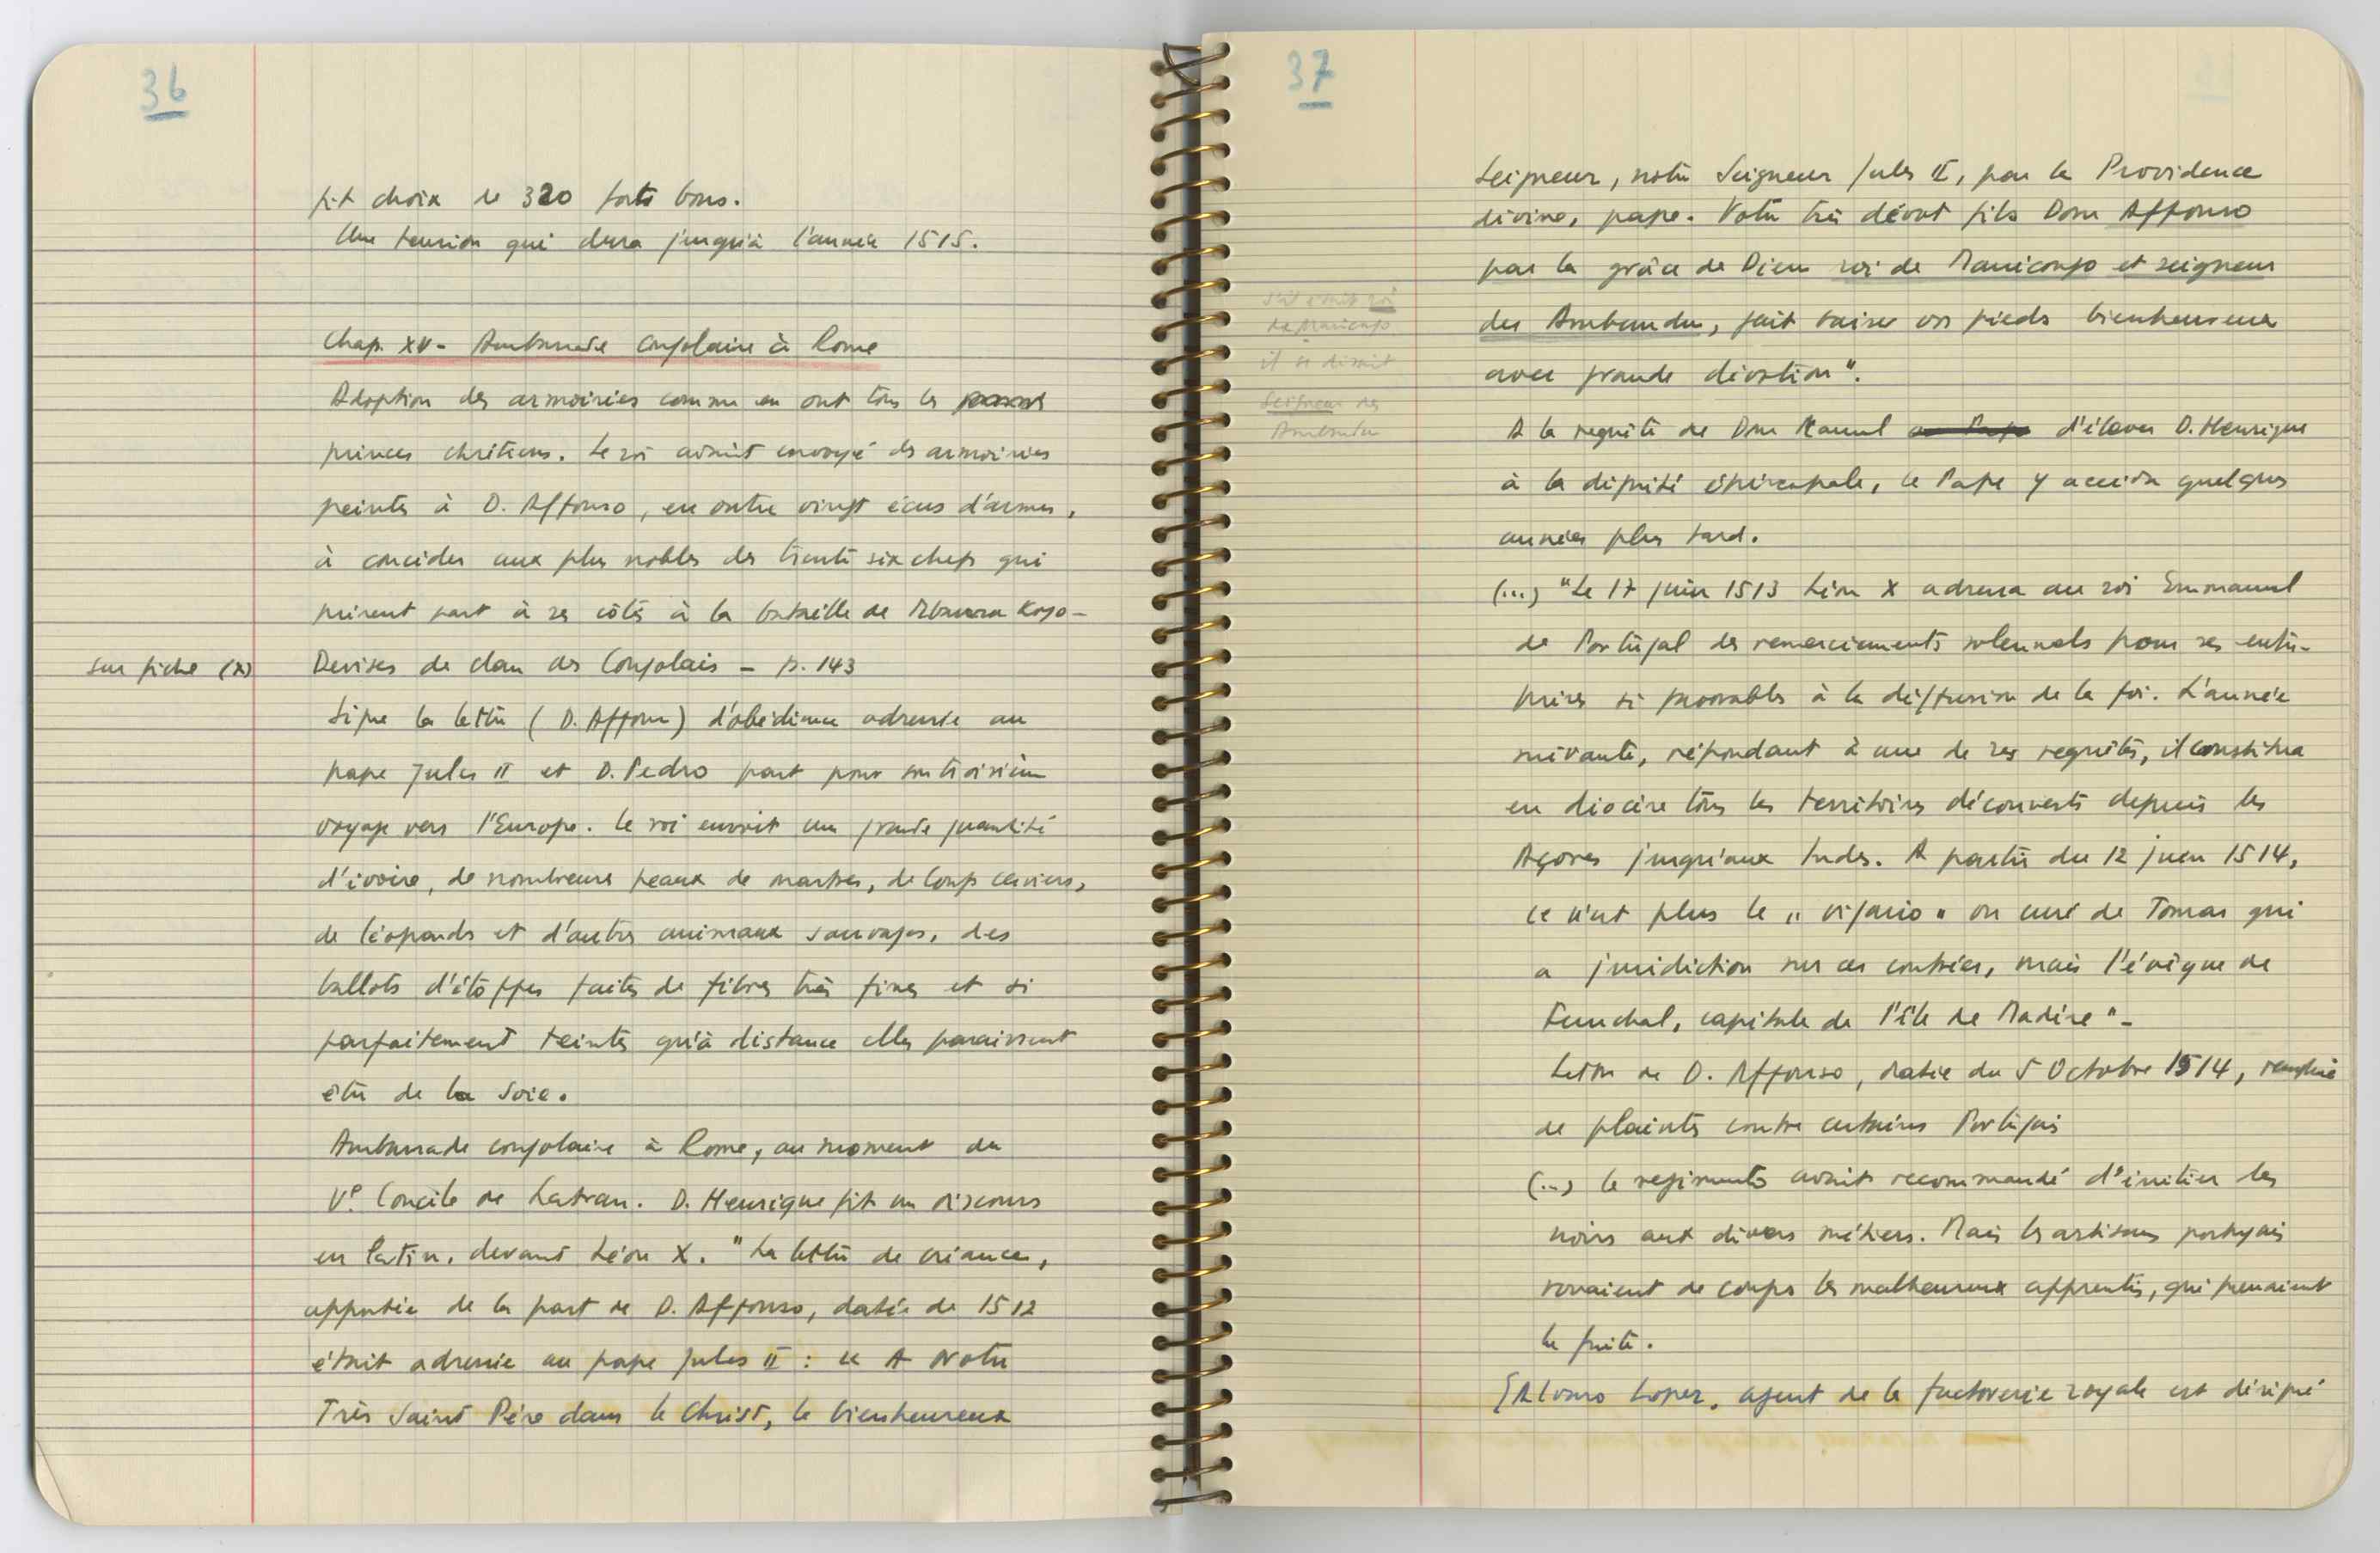 36
fit choix de 320 forts bons.
Une tension qui dura jusqu'à l'année 1515.
Chap. XV - Ambassade congolaise à Rome
Adoption des armoiries comme en ont tous les
princes chrétiens. Le roi avait envoyé des armoiries
peintes à D. Affonso, en outre vingt écus d'armes,
à concéder aux plus nobles des trente six chefs qui
prirent part à ses côtés à la bataille de Mbanza Kogo-
sur fiche (x)
Devises de clan des Congolais - p. 143
Signe la lettre (D. Affonso) d'obédience adressée au
pape Jules II et D. Pedro part pour son troisième
voyage vers l'Europe. Le roi envoit une grande quantité
d'ivoire, de nombreuses peaux de martres, de loups cerviers,
de léopards et d'autres animaux sauvages, des
ballots d'étoffes faites de fibres très fines et si
parfaitement teintes qu'à distance elles paraissent
être de la soie.
Ambassade congolaise à Rome, au moment du
Ve Concile de Latran. D. Henrique fit un discours
en latin, devant Léon X. "La lettre de créance,
apportée de la part de D. Affonso, datée de 1512
était adressée au pape Jules II : A Notre
Très Saint Père dans le Christ, le bienheureux
37
Seigneur, notre Seigneur Jules II, par la Providence
divine, pape. Votre très dévot fils Dom Affonso
par la grâce de Dieu roi de Manicongo et seigneur
des Ambundu, fait baiser vos pieds bienheureux
avec grande dévotion".
S'il était roi
de Manicongo
il se disait
Seigneur des
Ambundu
A la requête de Dom Manuel au Pape d'élever D. Henrique
à la dignité épiscopale, le Pape y accéda quelques
années plus tard.
(...) "Le 17 juin 1513 Léon X adressa au roi Emmanuel
de Portugal des remerciements solennels pour ses entre-
prises si favorables à la diffusion de la foi. L'année
suivante, répondant à une de ses requêtes, il constitua
en diocèse tous les territoires découverts depuis les
Açores jusqu'aux Indes. A partir du 12 juin 1514,
ce n'est plus le "vigario" ou curé de Tomar qui
a juridiction sur ces contrées, mais l'évêque de
Funchal, capitale de l'île de Madère"-
Lettre de D. Affonso, datée du 5 Octobre 1514, remplie
de plaintes contre certains Portugais
(...) le regimento avait recommandé d'initier les
noirs aux divers métiers. Mais les artisans portugais
rouaient de coups les malheureux apprentis, qui prenaient
la fuite.
[Alvaro Lopez, agent de la factorerie royale est désigné